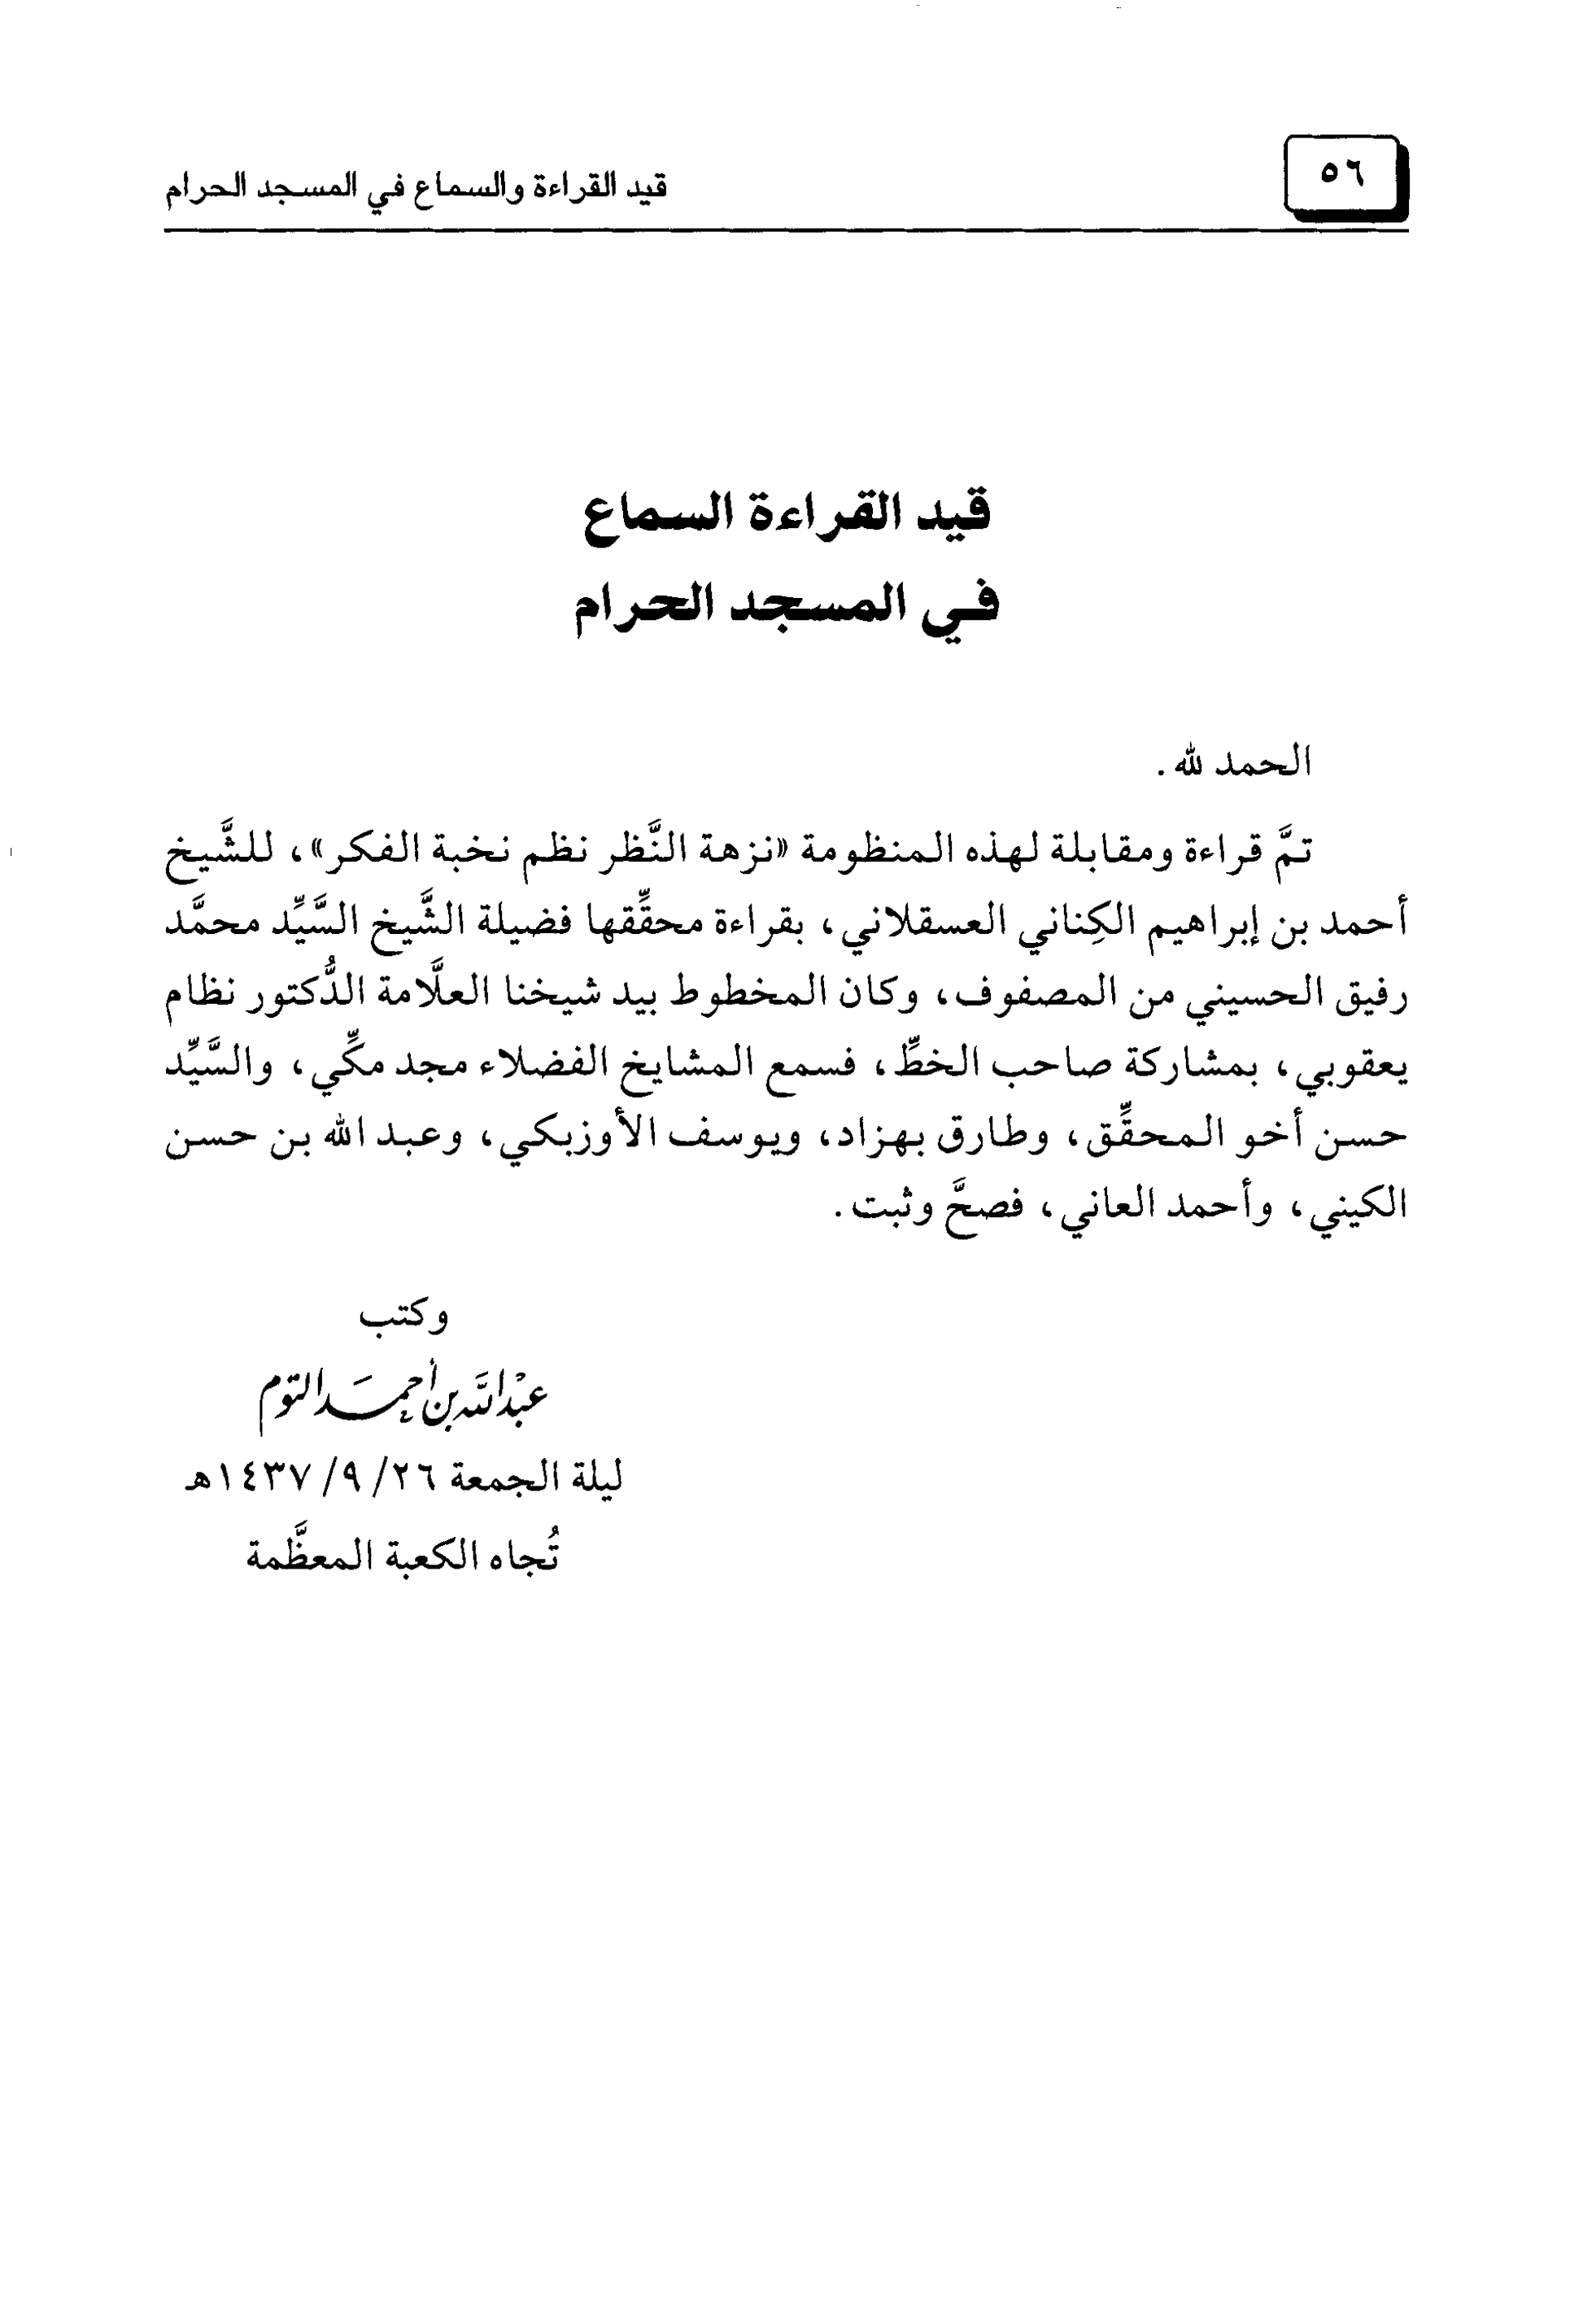 ٥٦
قيد القراءة والسماع في المسجد الحرام
قيد القراءة السماع
في المسجد الحرام
الحمد لله.
تمَّ قراءة ومقابلة لهذه المنظومة «نزهة النَّظر نظم نخبة الفكر»، للشَّيخ
أحمد بن إبراهيم الكِناني العسقلاني، بقراءة محقِّقها فضيلة الشَّيخ السَّيِّد محمَّد
رفيق الحسيني من المصفوف، وكان المخطوط بيد شيخنا العلَّامة الدُّكتور نظام
يعقوبي، بمشاركة صاحب الخطِّ، فسمع المشايخ الفضلاء مجد مكِّي، والسَّيِّد
حسن أخو المحقِّق، وطارق بهزاد، ويوسف الأوزبكي، وعبد الله بن حسن
الكيني، وأحمد العاني، فصحَّ وثبت.
وكتب
عبْد الله بن أحمَد التوم
ليلة الجمعة ٢٦/ ٩/ ١٤٣٧هـ
تُجاه الكعبة المعظَّمة